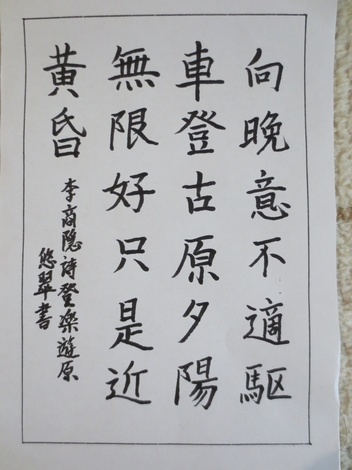 向晚意不適驅
車登古原夕陽
無限好只是近
黃昏
李商隐詩登樂遊原
悠翠書